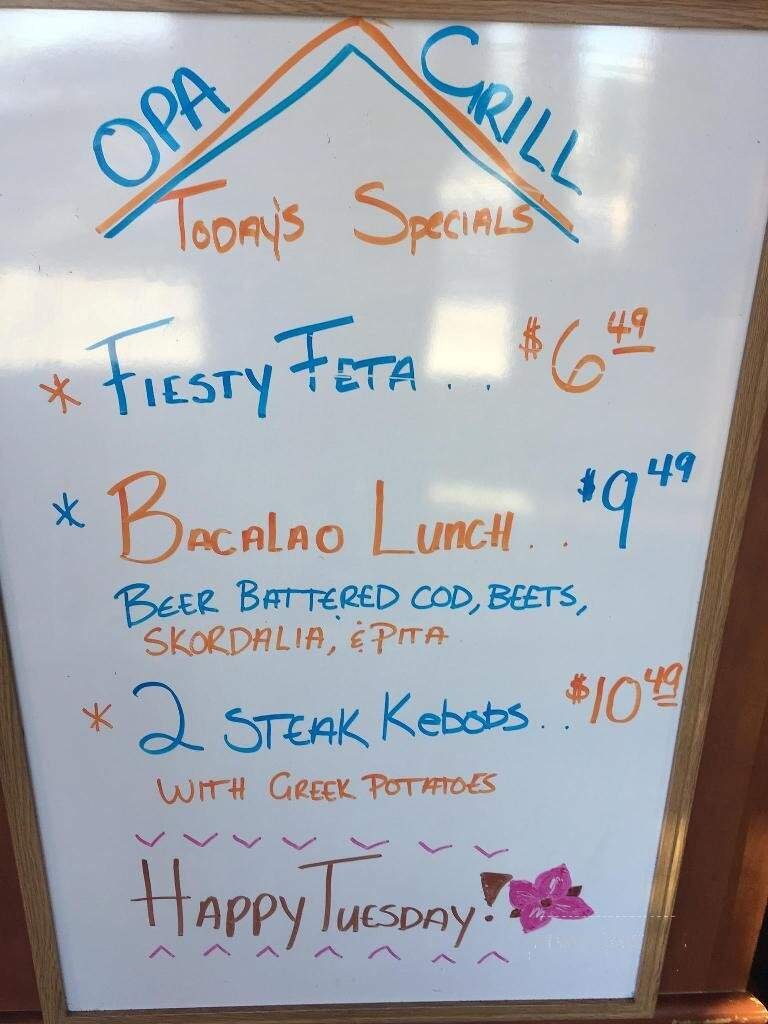 OPA GRILL
TODAY'S SPECIALS
* FIESTY FETA . . $6 49
* BACALAO LUNCH . . $9 49
BEER BATTERED COD, BEETS,
SKORDALIA, & PITA
* 2 STEAK KEBOBS . . $10 49
WITH GREEK POTATOES
HAPPY TUESDAY!